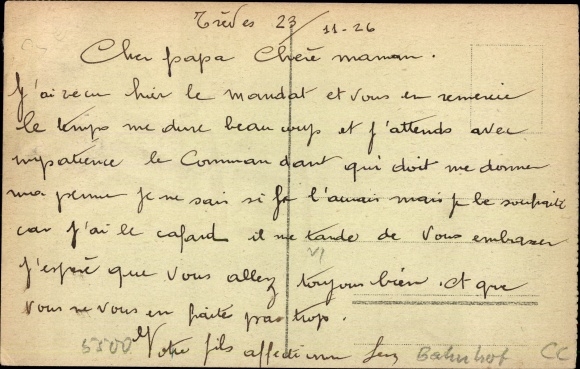 Trèves 23/11-26
Cher papa Chère maman.
J'ai recu hier le mandat et vous en remercie
le temps me dure beaucoup et j'attends avec
impatience le Commandant qui doit me donner
ma perme je ne sais si je l'aurais mais je le souhaite
car j'ai le cafard il me tarde de vous embrasser
j'espère que vous allez toujours bien. et que
vous ne vous en faites pas trop.
Votre fils affectionné
5500 Bahnhof CC